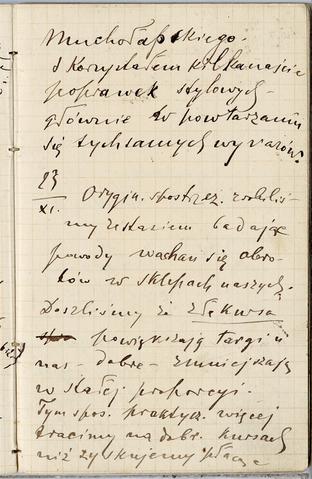 Muchołapskiego.
Skorzystałem kilkanaście
poprawek stylowych -
głównie w powtarzaniu
się tychsamych wyrazów.
23
XI. Orygin. spostrzeż. zrobiliś-
my ustaziem badając
powody wachań się obro-
tów w sklepach naszych.
Doszliśmy że złe kursa
powiększają targi u
nas - dobre - zmniejszają
w stałej proporcyi.
Tym spos. praktycz. więcej
tracimy na dobr. kursach
niż zyskujemy płacąc